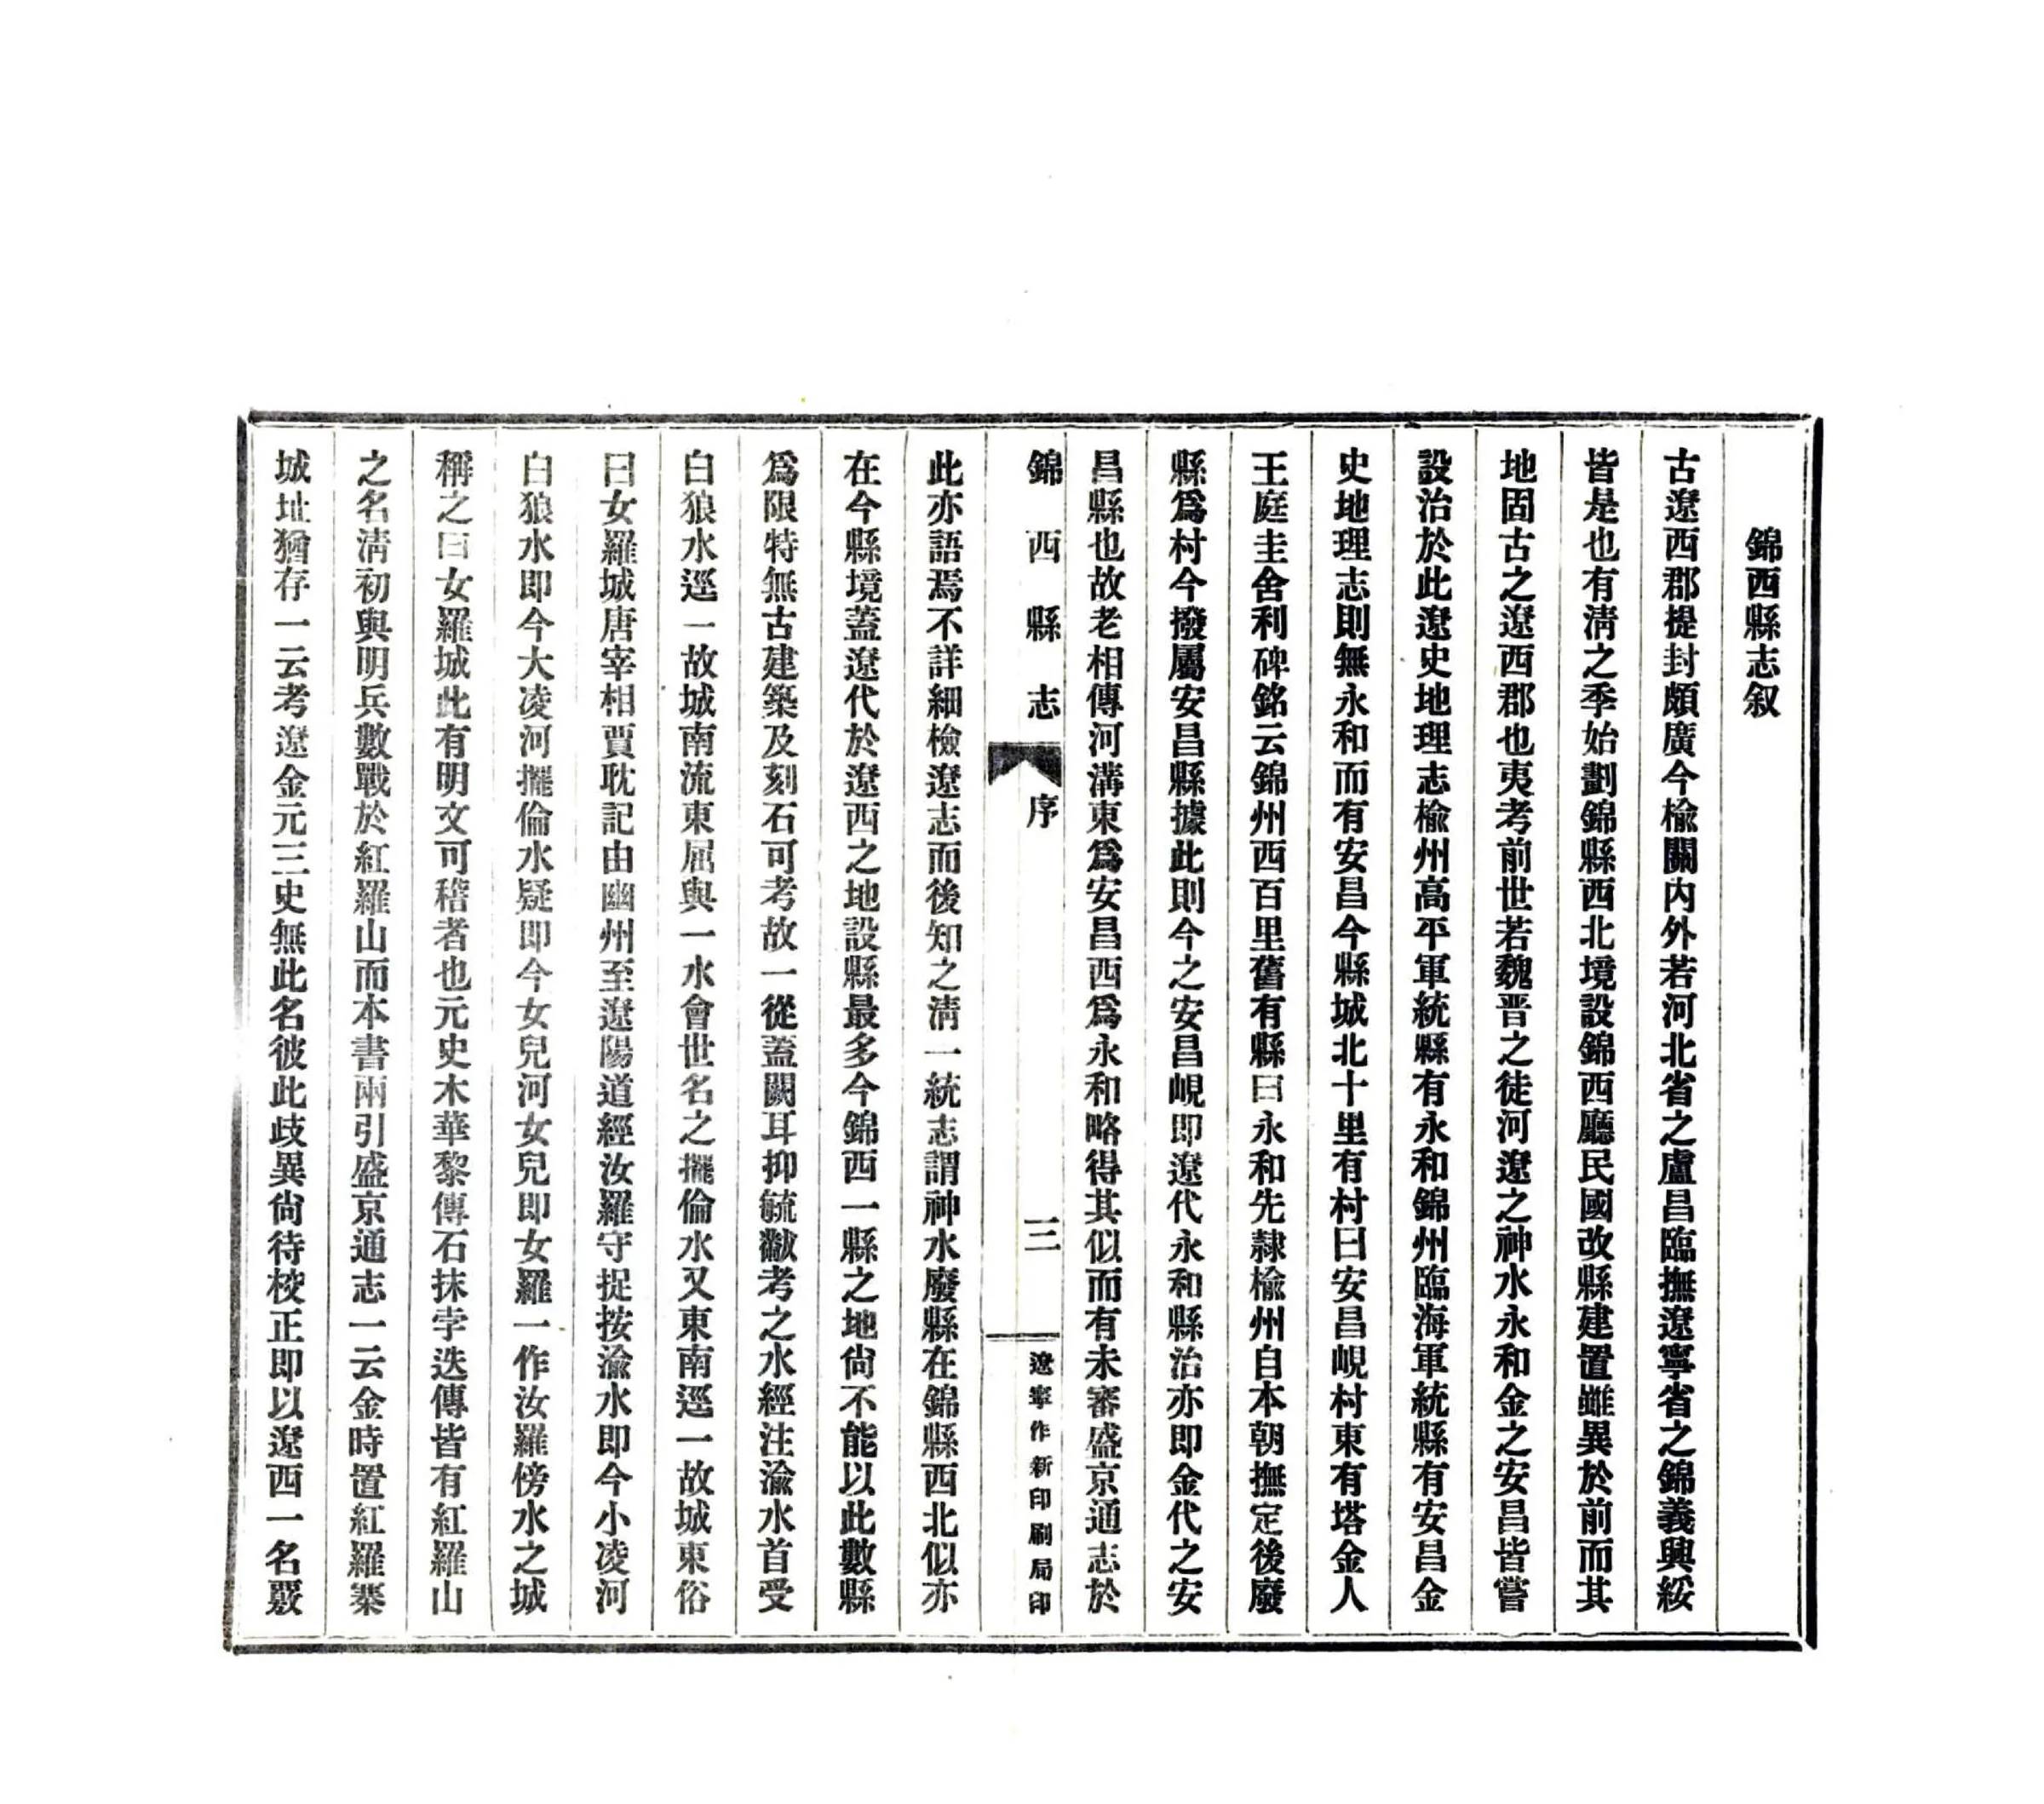 錦西縣志叙
古遼西郡提封頗廣今榆關內外若河北省之盧昌臨撫遼寧省之錦義興綏
皆是也有淸之季始劃錦縣西北境設錦西廳民國改縣建置雖異於前而其
地固古之遼西郡也夷考前世若魏晋之徒河遼之神水永和金之安昌皆嘗
設治於此遼史地理志榆州高平軍統縣有永和錦州臨海軍統縣有安昌金
史地理志則無永和而有安昌今縣城北十里有村曰安昌峴村東有塔金人
王庭圭舍利碑銘云錦州西百里舊有縣曰永和先隷榆州自本朝撫定後廢
縣爲村今撥屬安昌縣據此則今之安昌峴即遼代永和縣治亦即金代之安
昌縣也故老相傳河溝東爲安昌西爲永和略得其似而有未審盛京通志於
錦西縣志
序
三
遼寧作新印刷局印
此亦語焉不詳細檢遼志而後知之淸一統志謂神水廢縣在錦縣西北似亦
在今縣境蓋遼代於遼西之地設縣最多今錦西一縣之地尙不能以此數縣
爲限特無古建築及刻石可考故一從蓋闕耳抑毓黻考之水經注渝水首受
白狼水逕一故城南流東屈與一水會世名之㩧倫水又東南逕一故城東俗
曰女羅城唐宰相賈耽記由幽州至遼陽道經汝羅守捉按渝水即今小凌河
白狼水即今大凌河㩧倫水疑即今女兒河女兒即女羅一作汝羅傍水之城
稱之曰女羅城此有明文可稽者也元史木華黎傳石抹孛迭傳皆有紅羅山
之名淸初與明兵數戰於紅羅山而本書兩引盛京通志一云金時置紅羅寨
城址猶存一云考遼金元三史無此名彼此歧異尙待校正即以遼西一名覈